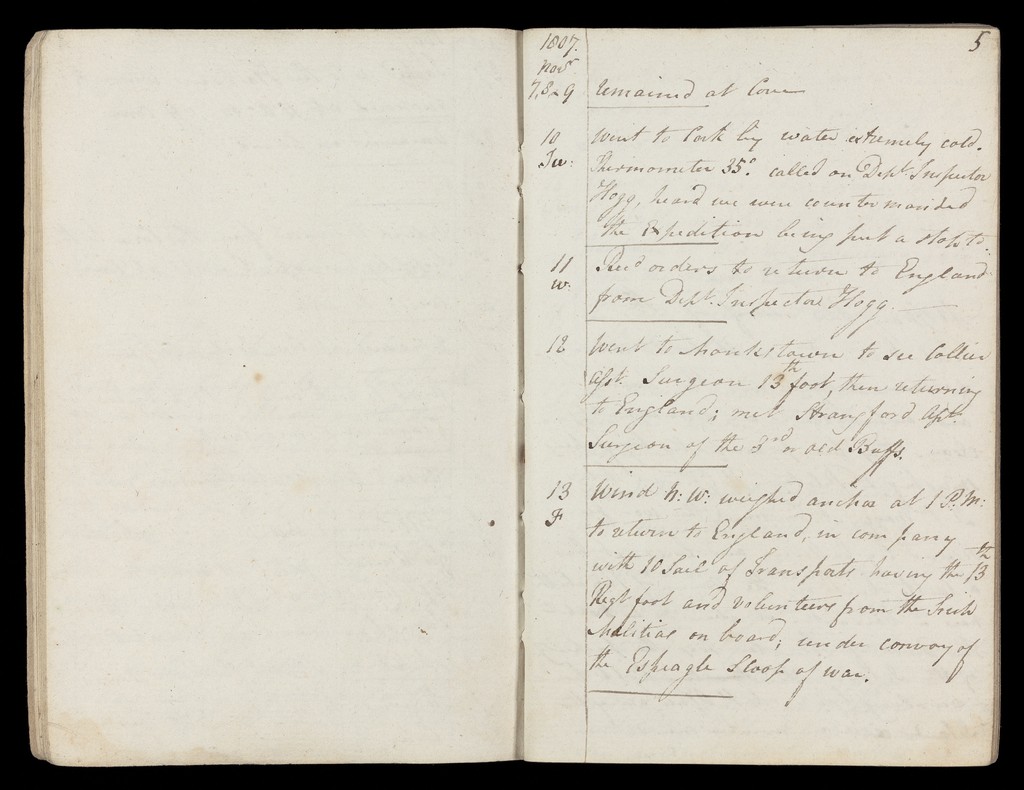 5
1807.
Novr
7, 8 & 9 remained at Cove
10 Went to Cork by water extremely cold.
Tu: Thermometer 35°. called on Depy. Inspector
Hogg, heard we were countermanded
the Expedition being put a stop to.
11 Recd orders to return to England
W. from Depy. Inspector Hogg.
12 Went to Monkstown to see Collier
Asst. Surgeon 13th foot, then returning
to England; met Strangford Asst.
Surgeon of the 3rd or old Buffs.
13 Wind N: W: weighed anchor at 1 P: M:
F to return to England, in company
with 10 Sail of Transports having the 13th
Regt foot and volunteers from the Irish
Malitias on board; under convoy of
the Espeagle Sloop of war.